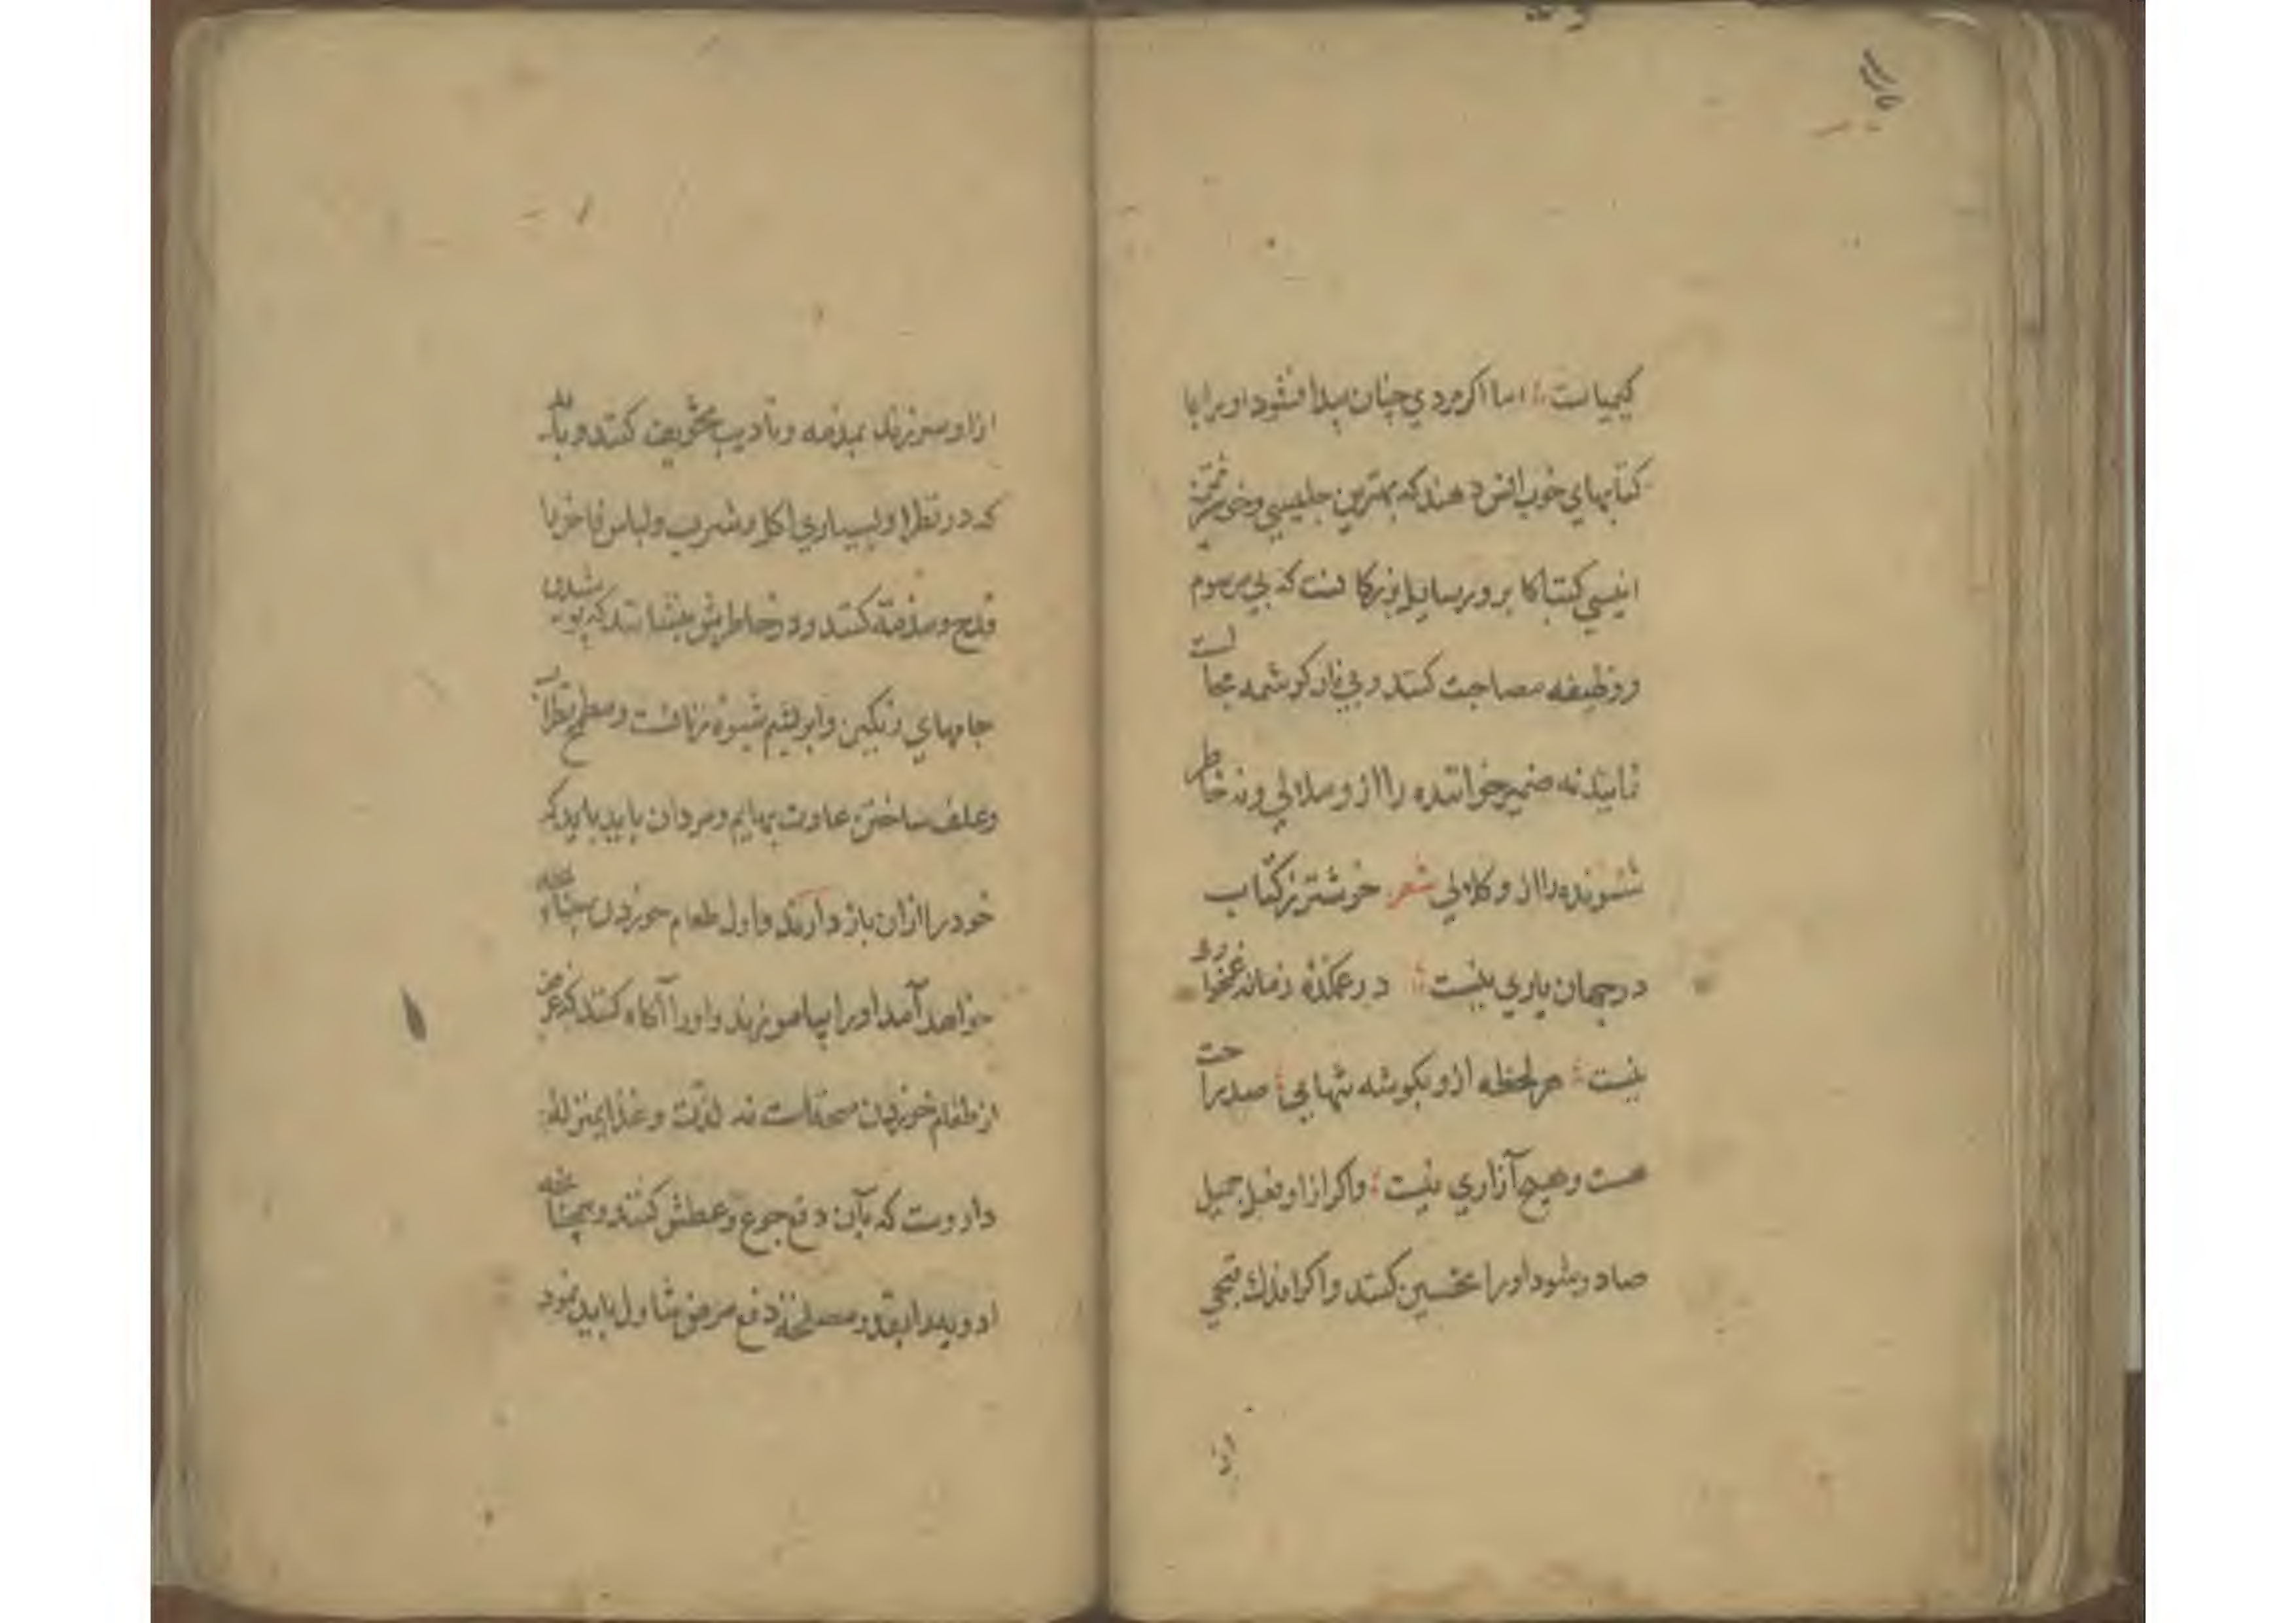 کیمیاست اما اکر مردي چنان پیدا نشود او را با
کتابهاي خوب انس دهند که بهترین جلیسي و خوشترین
انیسي کتب اکابر و رسایل بزرکانست که بي مرسوم
و وظیفه مصاحبت کنند و بي ناز و کرشمه مجالست
نمایند نه ضمیر خواننده را از و ملالي و نه خاطر
شنونده را از و کلالي شعر خوشتر ز کتاب
در جهان یاري نیست در غمکده زمانه غمخواري
نیست هر لحظه ازو بکوشه تنهایي صد راحت
هست و هیچ آزاري نیست و اکر از او فعل جمیل
صادر شود او را تحسین کنند و اکر اندك قبحي
از او
از او سر زند بمذمه و تادیب تخویف کنند و باید
که در نظر او بسیاري اکل و شرب و لباس فاخر را
قدح و مذمة کنند و در خاطرش بنشانند که پوشیدن
جامهاي رنکین و ابریشم شیوه زنانست و مطمح نظر آب
و علف ساختن عادت بهایم و مردان باید باید که
خود را از ان باز دارند و اول طعام خوردن چنانچه
خواهد آمد او را بیاموزند و او را آکاه کنند که غرض
از طعام خوردن صحة است نه لذت و غذا بمنزله
داروست که بآن دفع جوع و عطش کنند و همچنانچه
ادویه را بقدر مصلحة دفع مرض تناول باید نمود